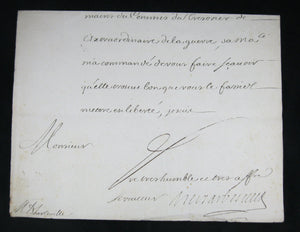 mains du Commis du Tresorier de
L'extraordinaire de la guerre, sa Ma.té
ma commandé de vous faire sçavoir
qu'elle trouve bon que vous le fassiez
mettre en liberté, je suis
Monsieur
Vre tres humble et tres affné
serviteur
Mr